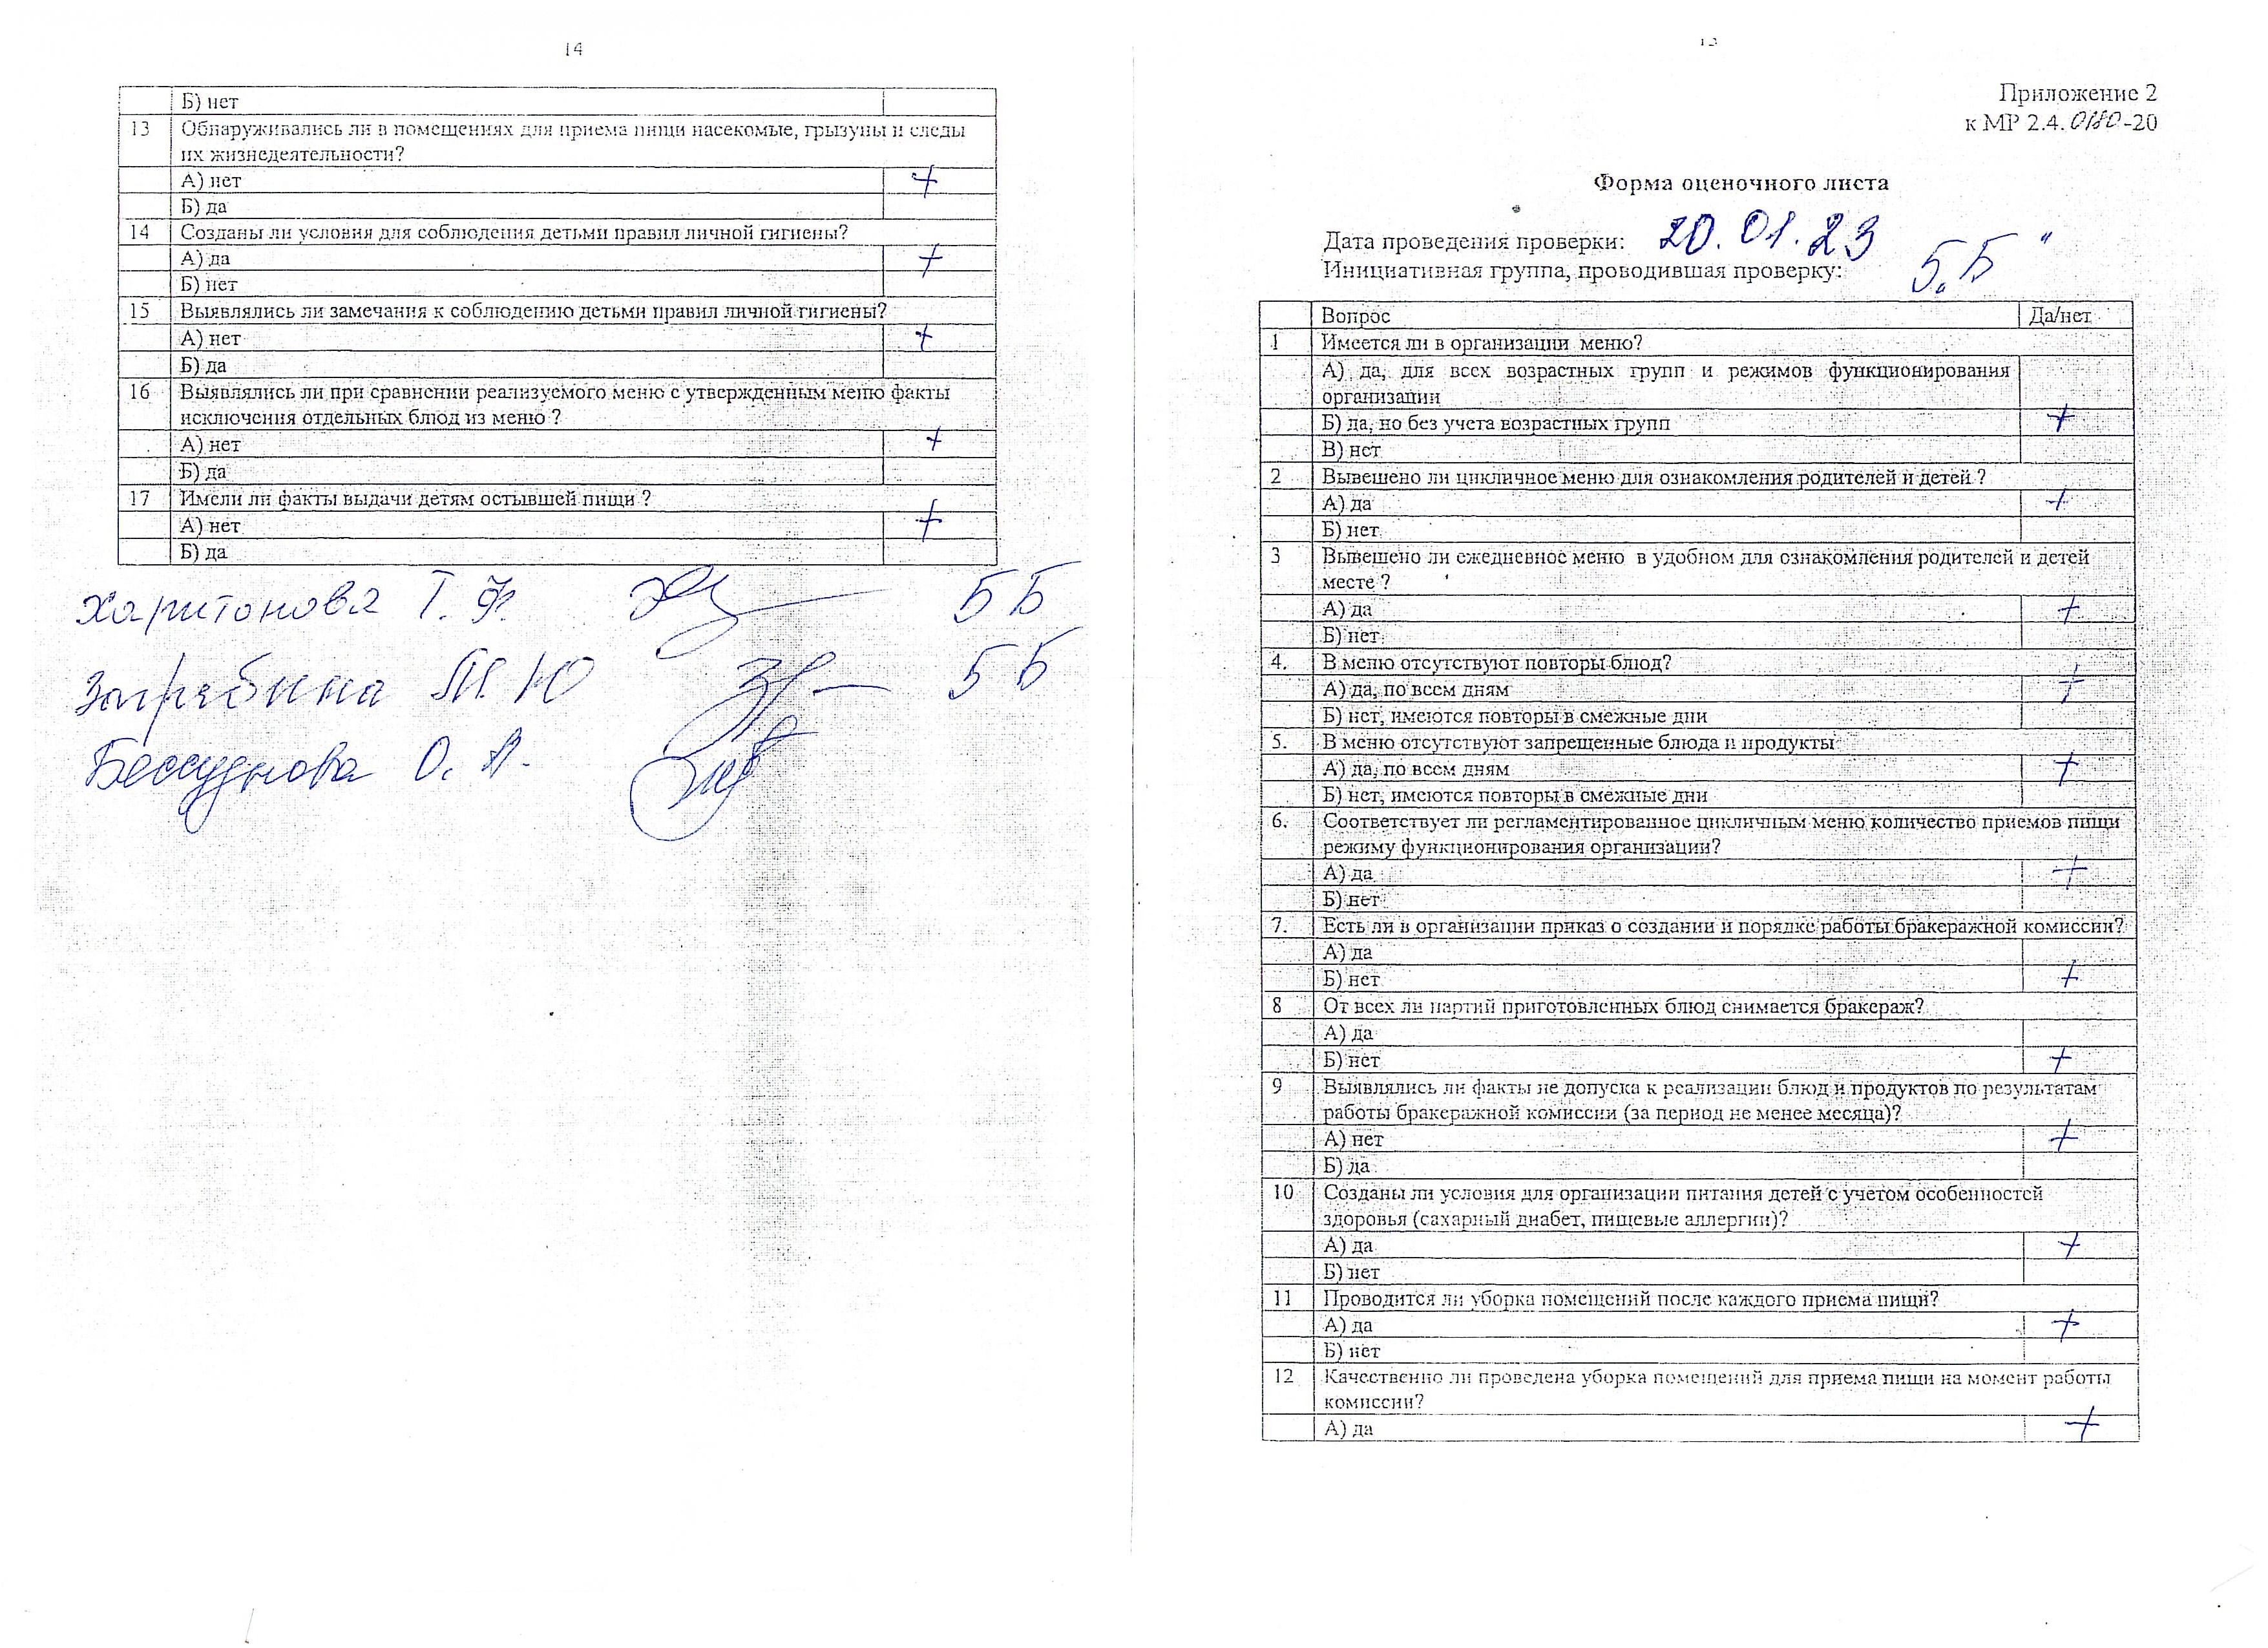 14
Б) нет
13 Обнаруживались ли в помещениях для приема пищи насекомые, грызуны и следы
их жизнедеятельности?
А) нет +
Б) да
14 Созданы ли условия для соблюдения детьми правил личной гигиены?
А) да +
Б) нет
15 Выявлялись ли замечания к соблюдению детьми правил личной гигиены?
А) нет +
Б) да
16 Выявлялись ли при сравнении реализуемого меню с утвержденным меню факты
исключения отдельных блюд из меню ?
А) нет +
Б) да
17 Имели ли факты выдачи детям остывшей пищи ?
А) нет +
Б) да
Харитонова Т. Ф. 5 Б
Загребина М. Ю 5 Б
Бессуднова О. А.
Приложение 2
к МР 2.4.0180-20
Форма оценочного листа
Дата проведения проверки: 20.01.23
Инициативная группа, проводившая проверку: 5„Б"
Вопрос Да/нет
1 Имеется ли в организации меню?
А) да, для всех возрастных групп и режимов функционирования
организации
Б) да, но без учета возрастных групп +
В) нет
2 Вывешено ли цикличное меню для ознакомления родителей и детей ?
А) да +
Б) нет
3 Вывешено ли ежедневное меню в удобном для ознакомления родителей и детей
месте ?
А) да +
Б) нет
4. В меню отсутствуют повторы блюд?
А) да, по всем дням +
Б) нет, имеются повторы в смежные дни
5. В меню отсутствуют запрещенные блюда и продукты
А) да, по всем дням +
Б) нет, имеются повторы в смежные дни
6. Соответствует ли регламентированное цикличным меню количество приемов пищи
режиму функционирования организации?
А) да +
Б) нет
7. Есть ли в организации приказ о создании и порядке работы бракеражной комиссии?
А) да
Б) нет +
8 От всех ли партий приготовленных блюд снимается бракераж?
А) да
Б) нет +
9 Выявлялись ли факты не допуска к реализации блюд и продуктов по результатам
работы бракеражной комиссии (за период не менее месяца)?
А) нет +
Б) да
10 Созданы ли условия для организации питания детей с учетом особенностей
здоровья (сахарный диабет, пищевые аллергии)?
А) да +
Б) нет
11 Проводится ли уборка помещений после каждого приема пищи?
А) да +
Б) нет
12 Качественно ли проведена уборка помещений для приема пищи на момент работы
комиссии?
А) да +